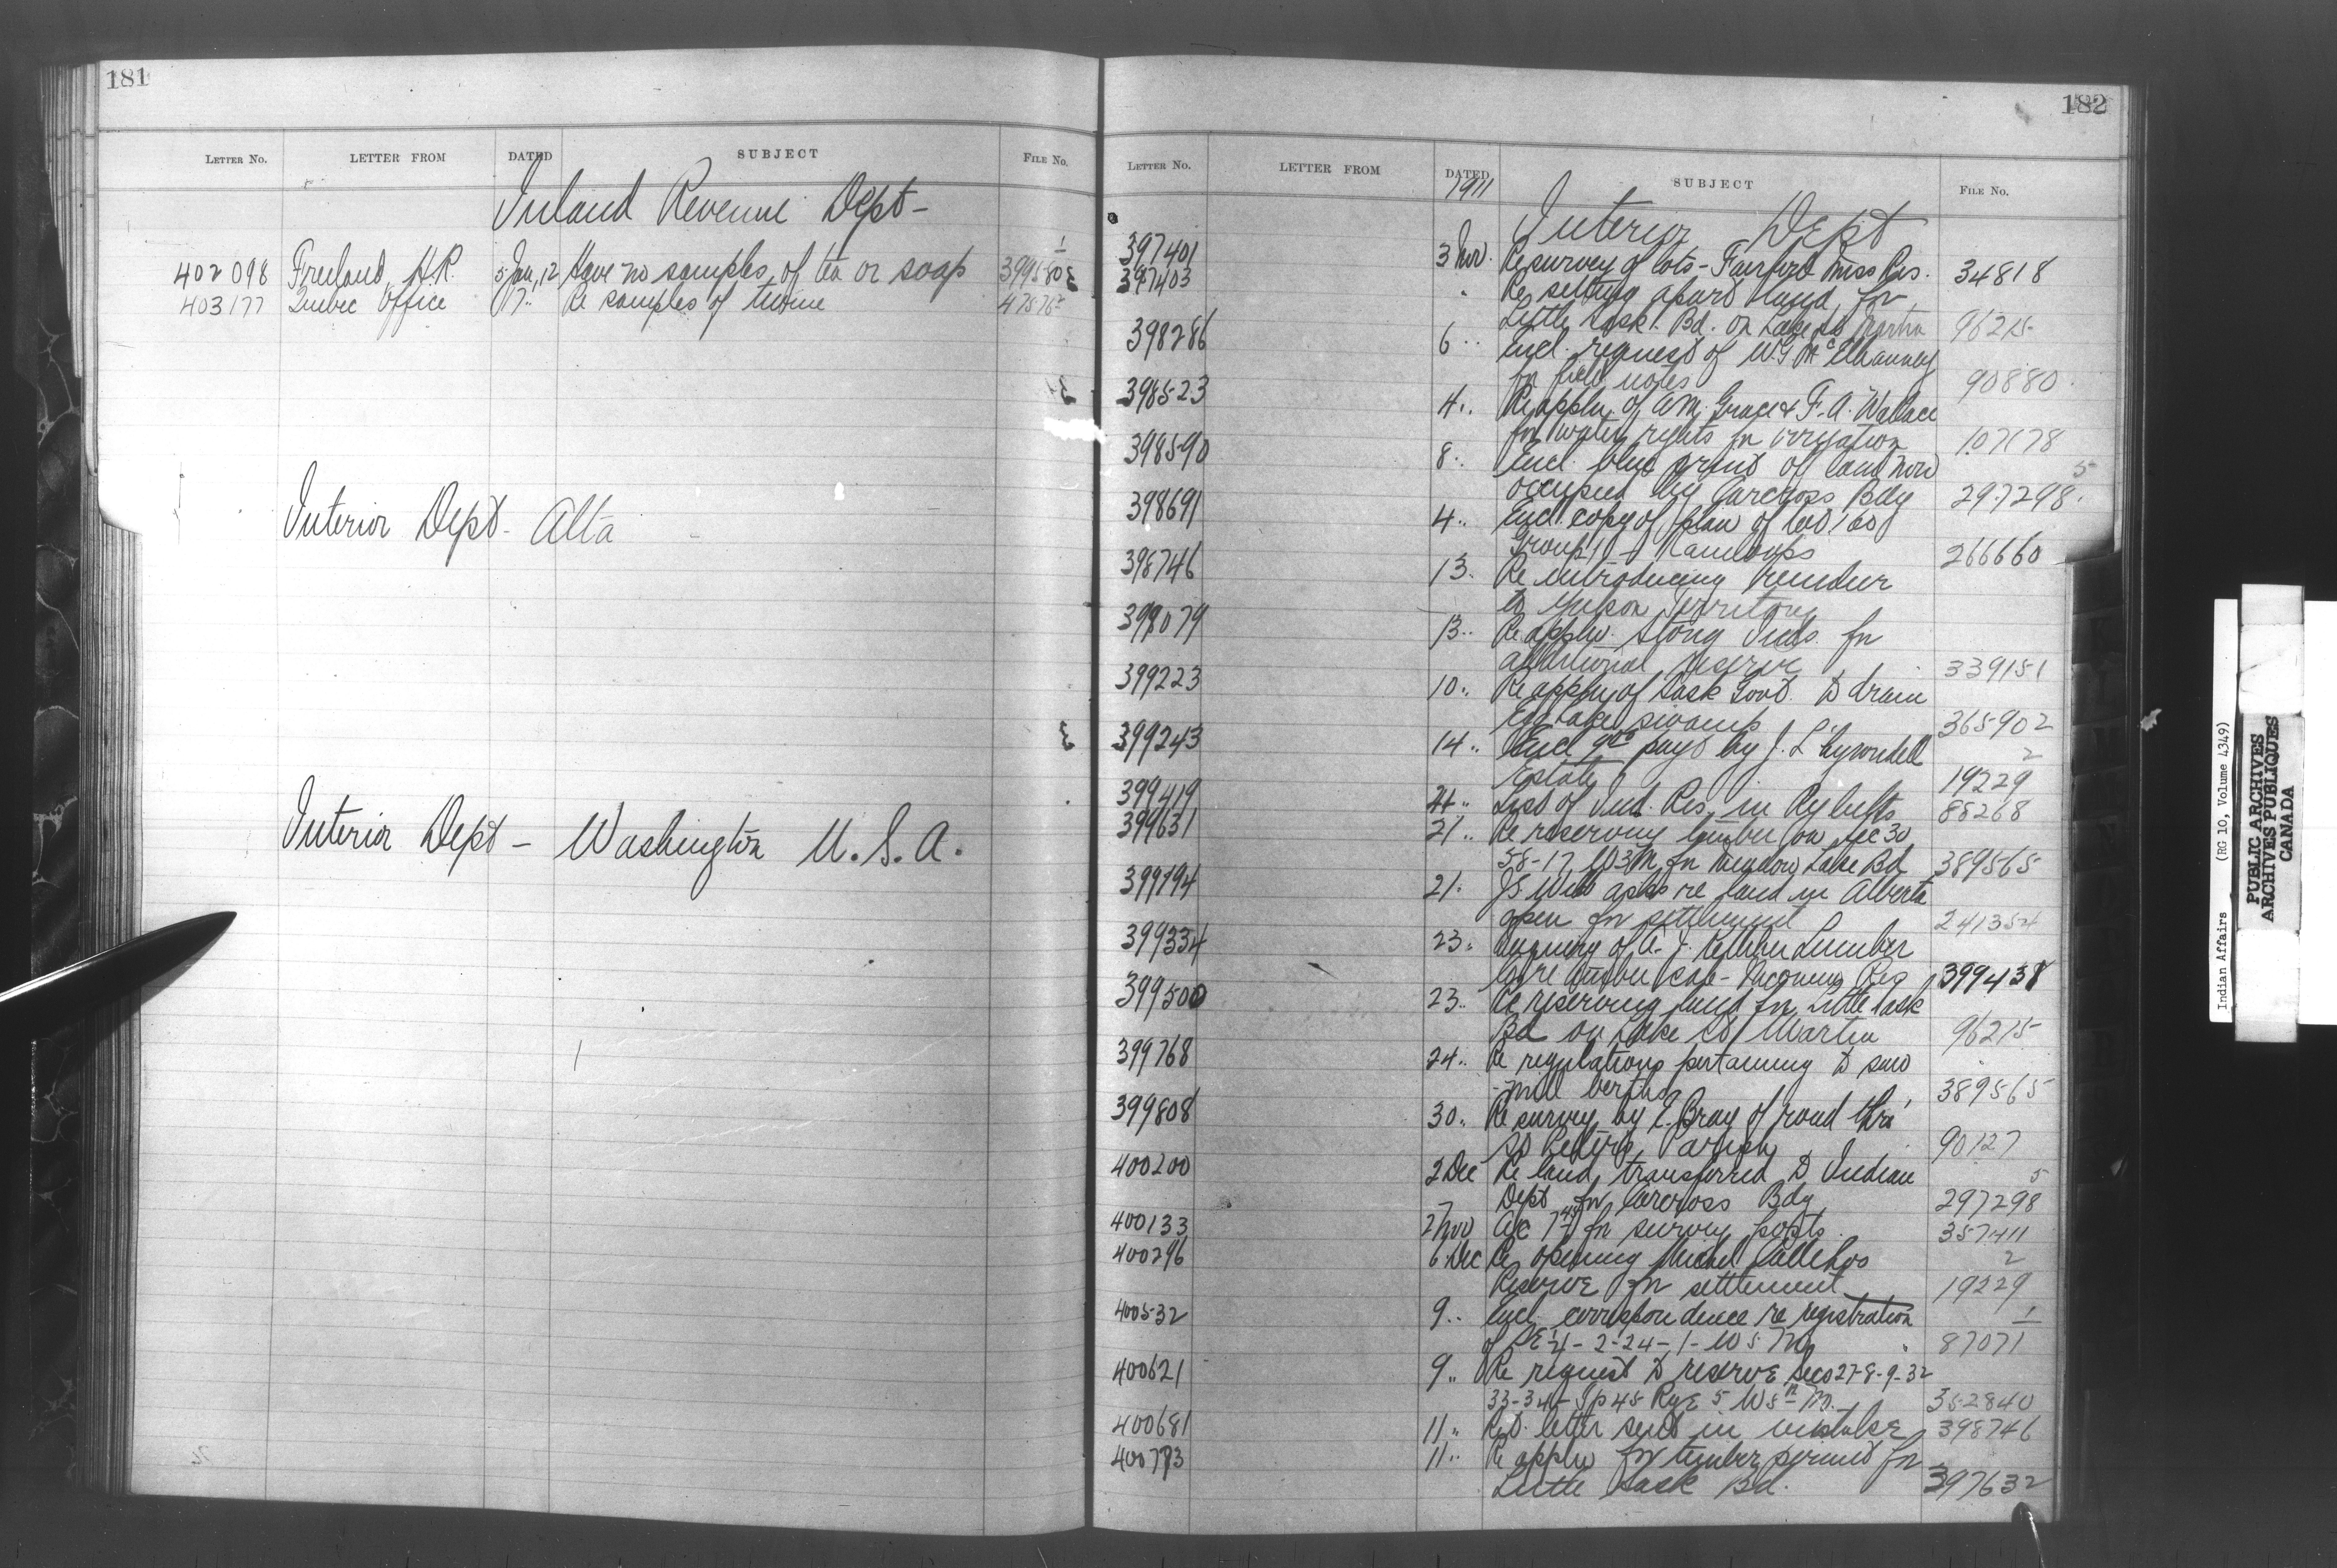 181
LETTER NO. LETTER FROM DATED SUBJECT FILE NO.
Inland Revenue Dept-
402098 Freeland, H.R. 5 Jan, 12 Have no samples of tea or soap 399580 1
403177 Quebec Office 17 " Re samples of twine
Interior Dept- Alta
Interior Dept - Washington U.S.A.
182
LETTER NO. LETTER FROM DATED SUBJECT FILE NO.
1911
Interior Dept
397401 3 Nov. Re survey of lots - Fairford Miss Res. 34818
397403 " Re setting apart land for
Little Sask. Bd. on Lake St Martin 96215
398286 6 " Encl. request of W G McElhanney
for field notes 90880
398523 4 " Re appln. of A.M. Grace & F. A. Wallace
for water rights for irrigation 107178
398590 8 " Encl. blue print of land now
occupied by Carcross Bdg 297298 5
398691 4 " Encl. copy of plan of Lot 160
Group 1 - Kamloops 266660
398746 13 " Re introducing reindeer
to Yukon Territory
399079 13 " Re appln. Stony Inds. for
additional reserve 339151
399223 10 " Re appln of Sask Govt. to drain
Egg Lake swamp 365902
399243 14 " Encl 9th payt by J. L.
Estate 19229 2
399419 21 " List of Ind. Res. in Ry belts 88268
399631 21 " Re reserving timber on Sec 30
58-17 W3M for Meadow Lake Bd 389565
399194 21 " J S Will asks re land in Alberta
open for settlement 241354
399334 23 " of A. J. Lumber
Co re timber Res 399438
399500 23 " Re reserving land for Little Sask
Bd on Lake St Martin 96215
399768 24 " Re regulations pertaining to saw
-mill berths 389565
399808 30 " Re survey by E. Bray of road thro'
St Peters Parish 90127
400200 2 Dec Re land transferred to Indian
Dept for Carcross Bdg 297298 5
400133 2 Nov A/c for survey posts 357411
400296 6 Dec Re opening Michel Callihos
Reserve for settlement 19229 2
400532 9 " Encl. correspondence re registration
of SE 1/4 - 2-24-1-W5M 87071 1
400621 9 " Re request to reserve Secs 27-8-9-32
33-34 - Tp 45 Rge 5 W5th M. 352840
400681 11 " Ret. letter sent in mistake 398746
400773 11 " Re appln for timber permit for
Little Sask Bd. 397632
Indian Affairs (RG 10, Volume 4349)
PUBLIC ARCHIVES
ARCHIVES PUBLIQUES
CANADA